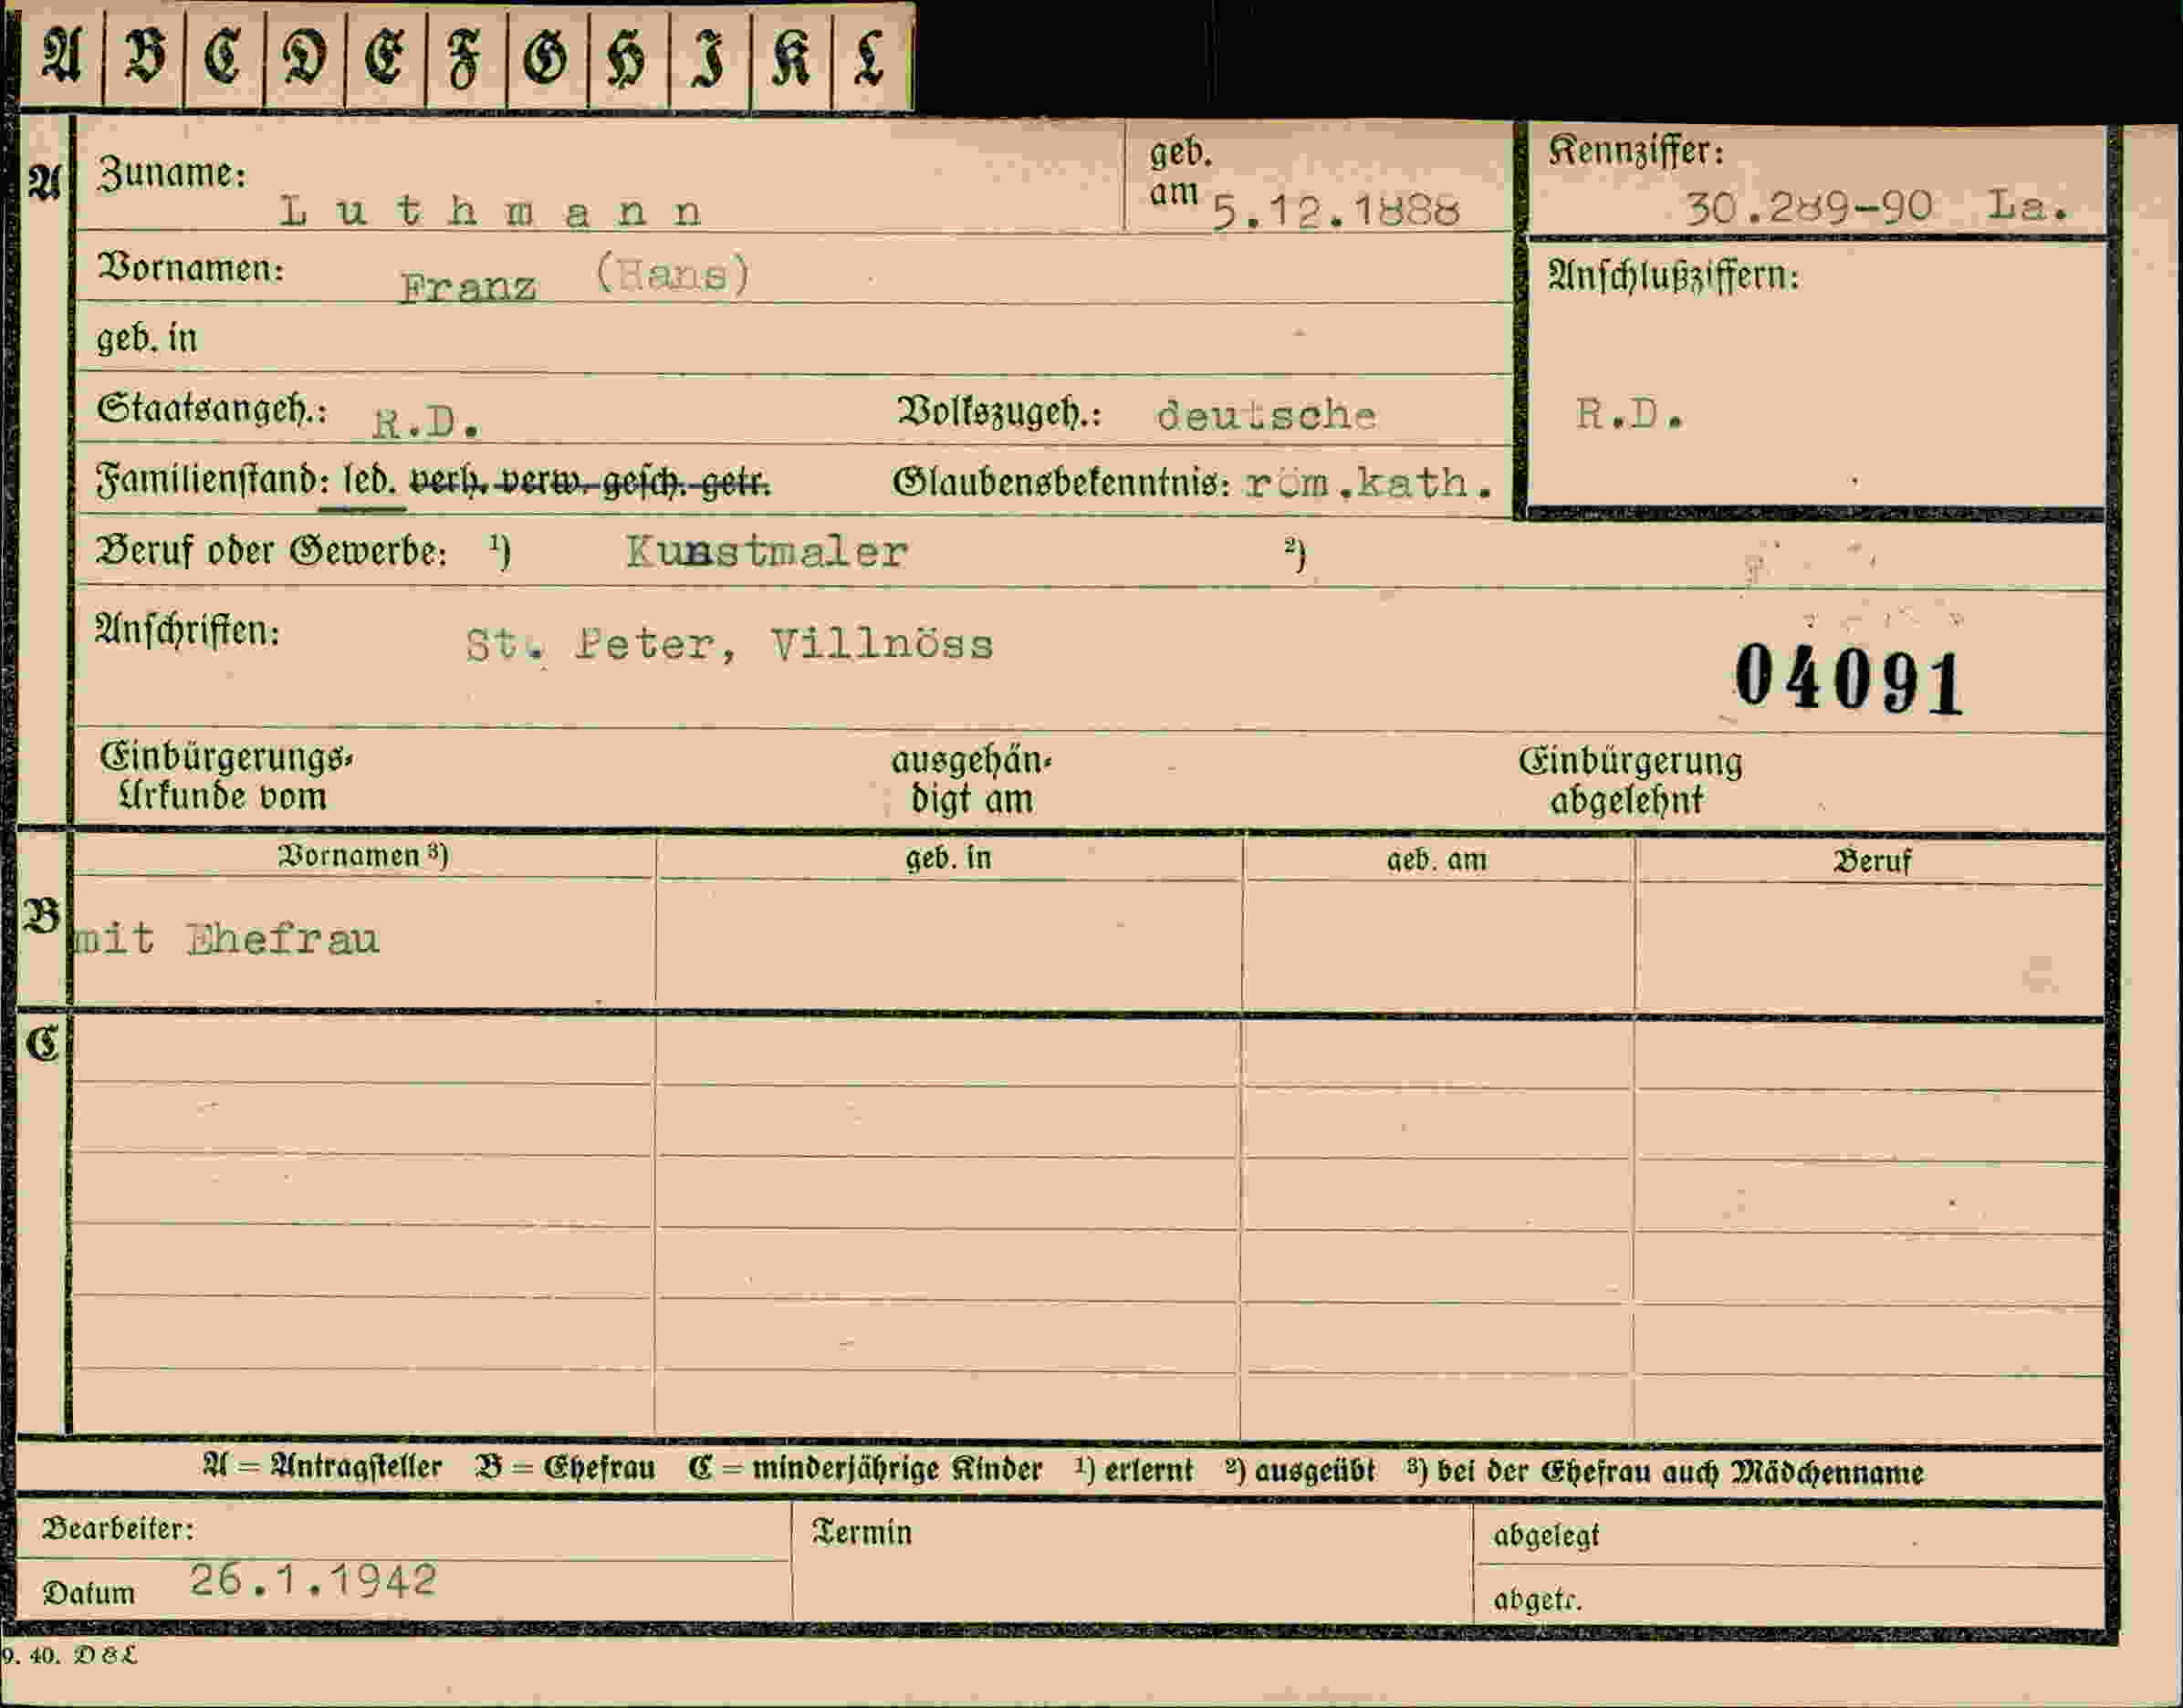 A B C D E F G H I K L
A Zuname: Luthmann geb. am 5.12.1888 Kennziffer: 30.289-90 La.
Vornamen: Franz (Hans) Anschlußziffern:
geb. in
Staatsangeh.: R.D. Volkszugeh.: deutsche R.D.
Familienstand: led. verh. verw. gesch. getr. Glaubensbekenntnis: röm.kath.
Beruf oder Gewerbe: ¹) Kunstmaler ²)
Anschriften: St. Peter, Villnöss 04091
Einbürgerungs- ausgehän- Einbürgerung
Urkunde vom digt am abgelehnt
Vornamen ³) geb. in geb. am Beruf
B mit Ehefrau
C
A = Antragsteller B = Ehefrau C = minderjährige Kinder ¹) erlernt ²) ausgeübt ³) bei der Ehefrau auch Mädchenname
Bearbeiter: Termin abgelegt
Datum 26.1.1942 abgetr.
9. 40. D&L